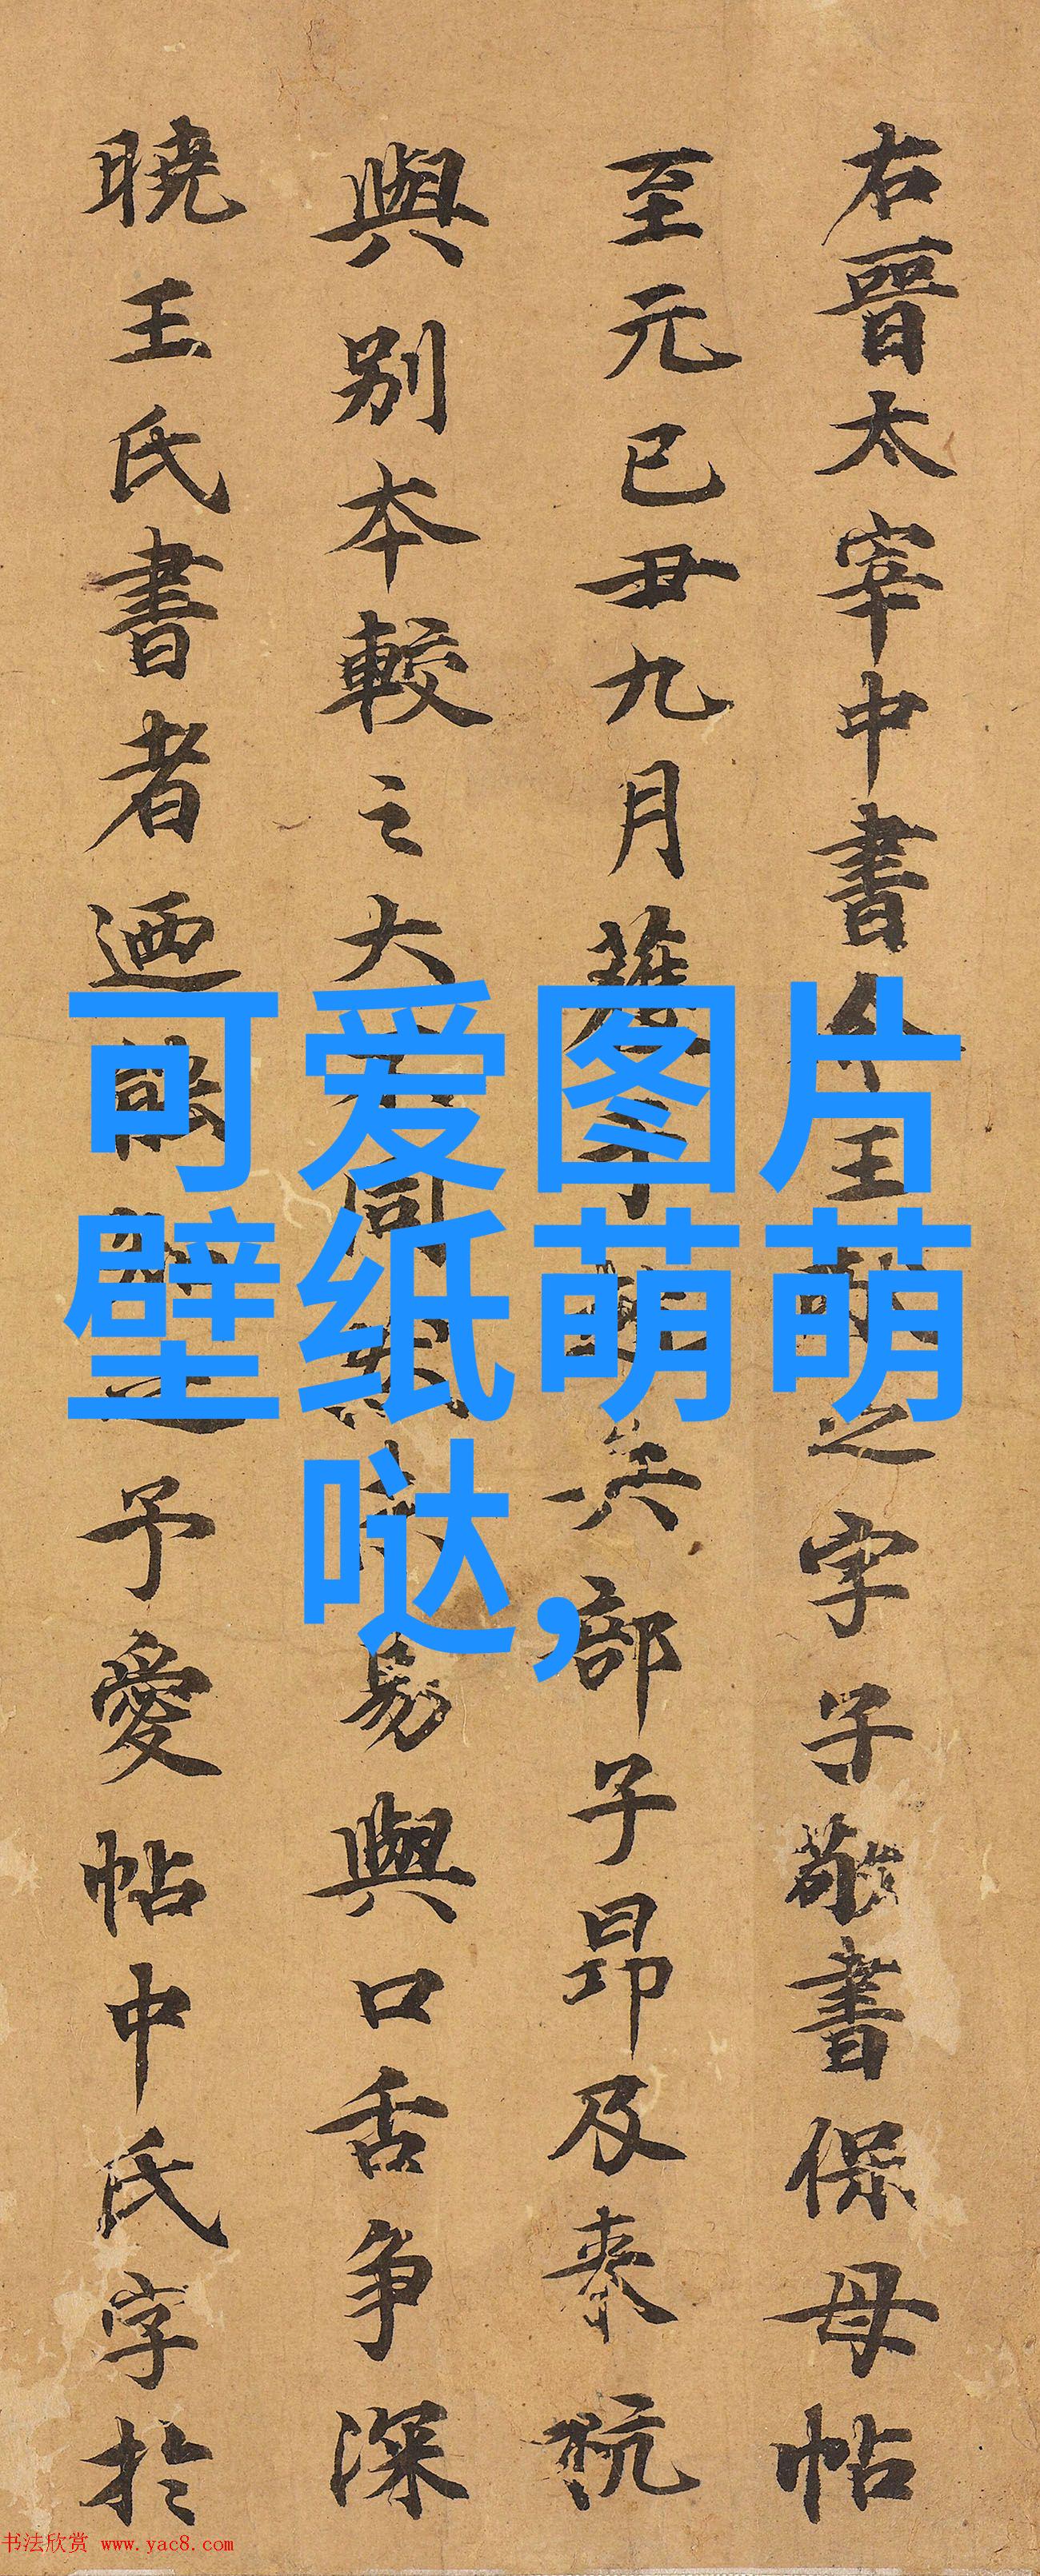 右晉太宰中書令王獻之字子敬書保母帖
至元己丑九月 兵部子昂及秦
與別本較之大 同 易與口舌争深
曉王氏書者迺能 之予愛帖中氏字於
可爱图片
壁纸萌萌
哒,
书法欣赏 www.yac8.com